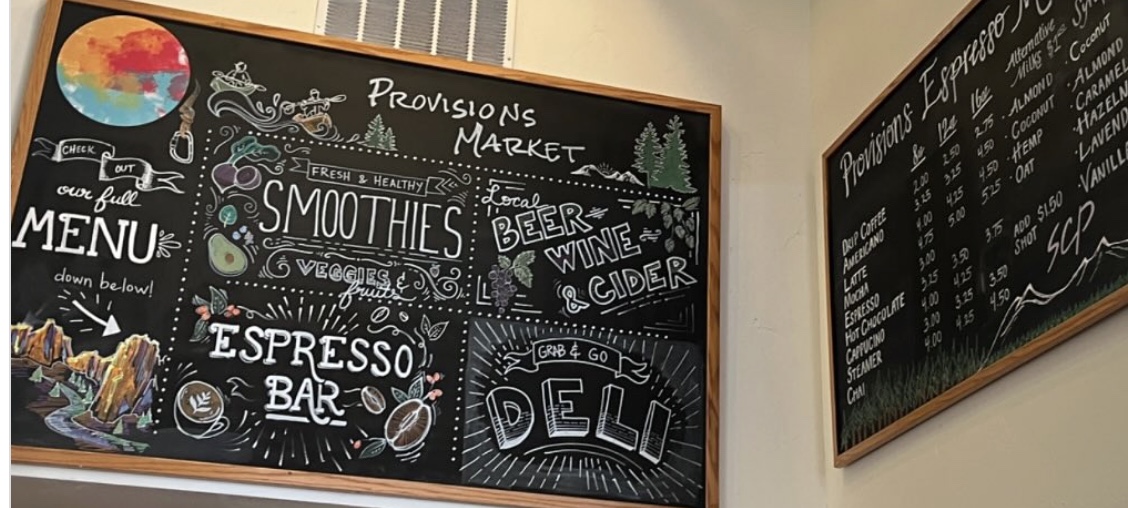 PROVISIONS
MARKET
CHECK
OUT
our full
MENU
down below!
FRESH & HEALTHY
SMOOTHIES
VEGGIES &
fruits
Local
BEER
WINE
& CIDER
ESPRESSO
BAR
GRAB & GO
DELI
Provisions Espresso
8oz 12oz 16oz
DRIP COFFEE 2.00 2.50 2.75
AMERICANO 3.25 3.25 4.50
LATTE 4.00 4.25 4.50
MOCHA 4.75 5.00 5.25
ESPRESSO 3.00
HOT CHOCOLATE 3.25 3.50 3.75
CAPPUCINO 4.00 4.25
STEAMER 3.00 3.25 3.50
CHAI 4.00 4.25 4.50
Alternative
Milks $1
· ALMOND
· COCONUT
· HEMP
· OAT
ADD $1.50
SHOT
· Coconut
· ALMOND
· CARAMEL
SCP